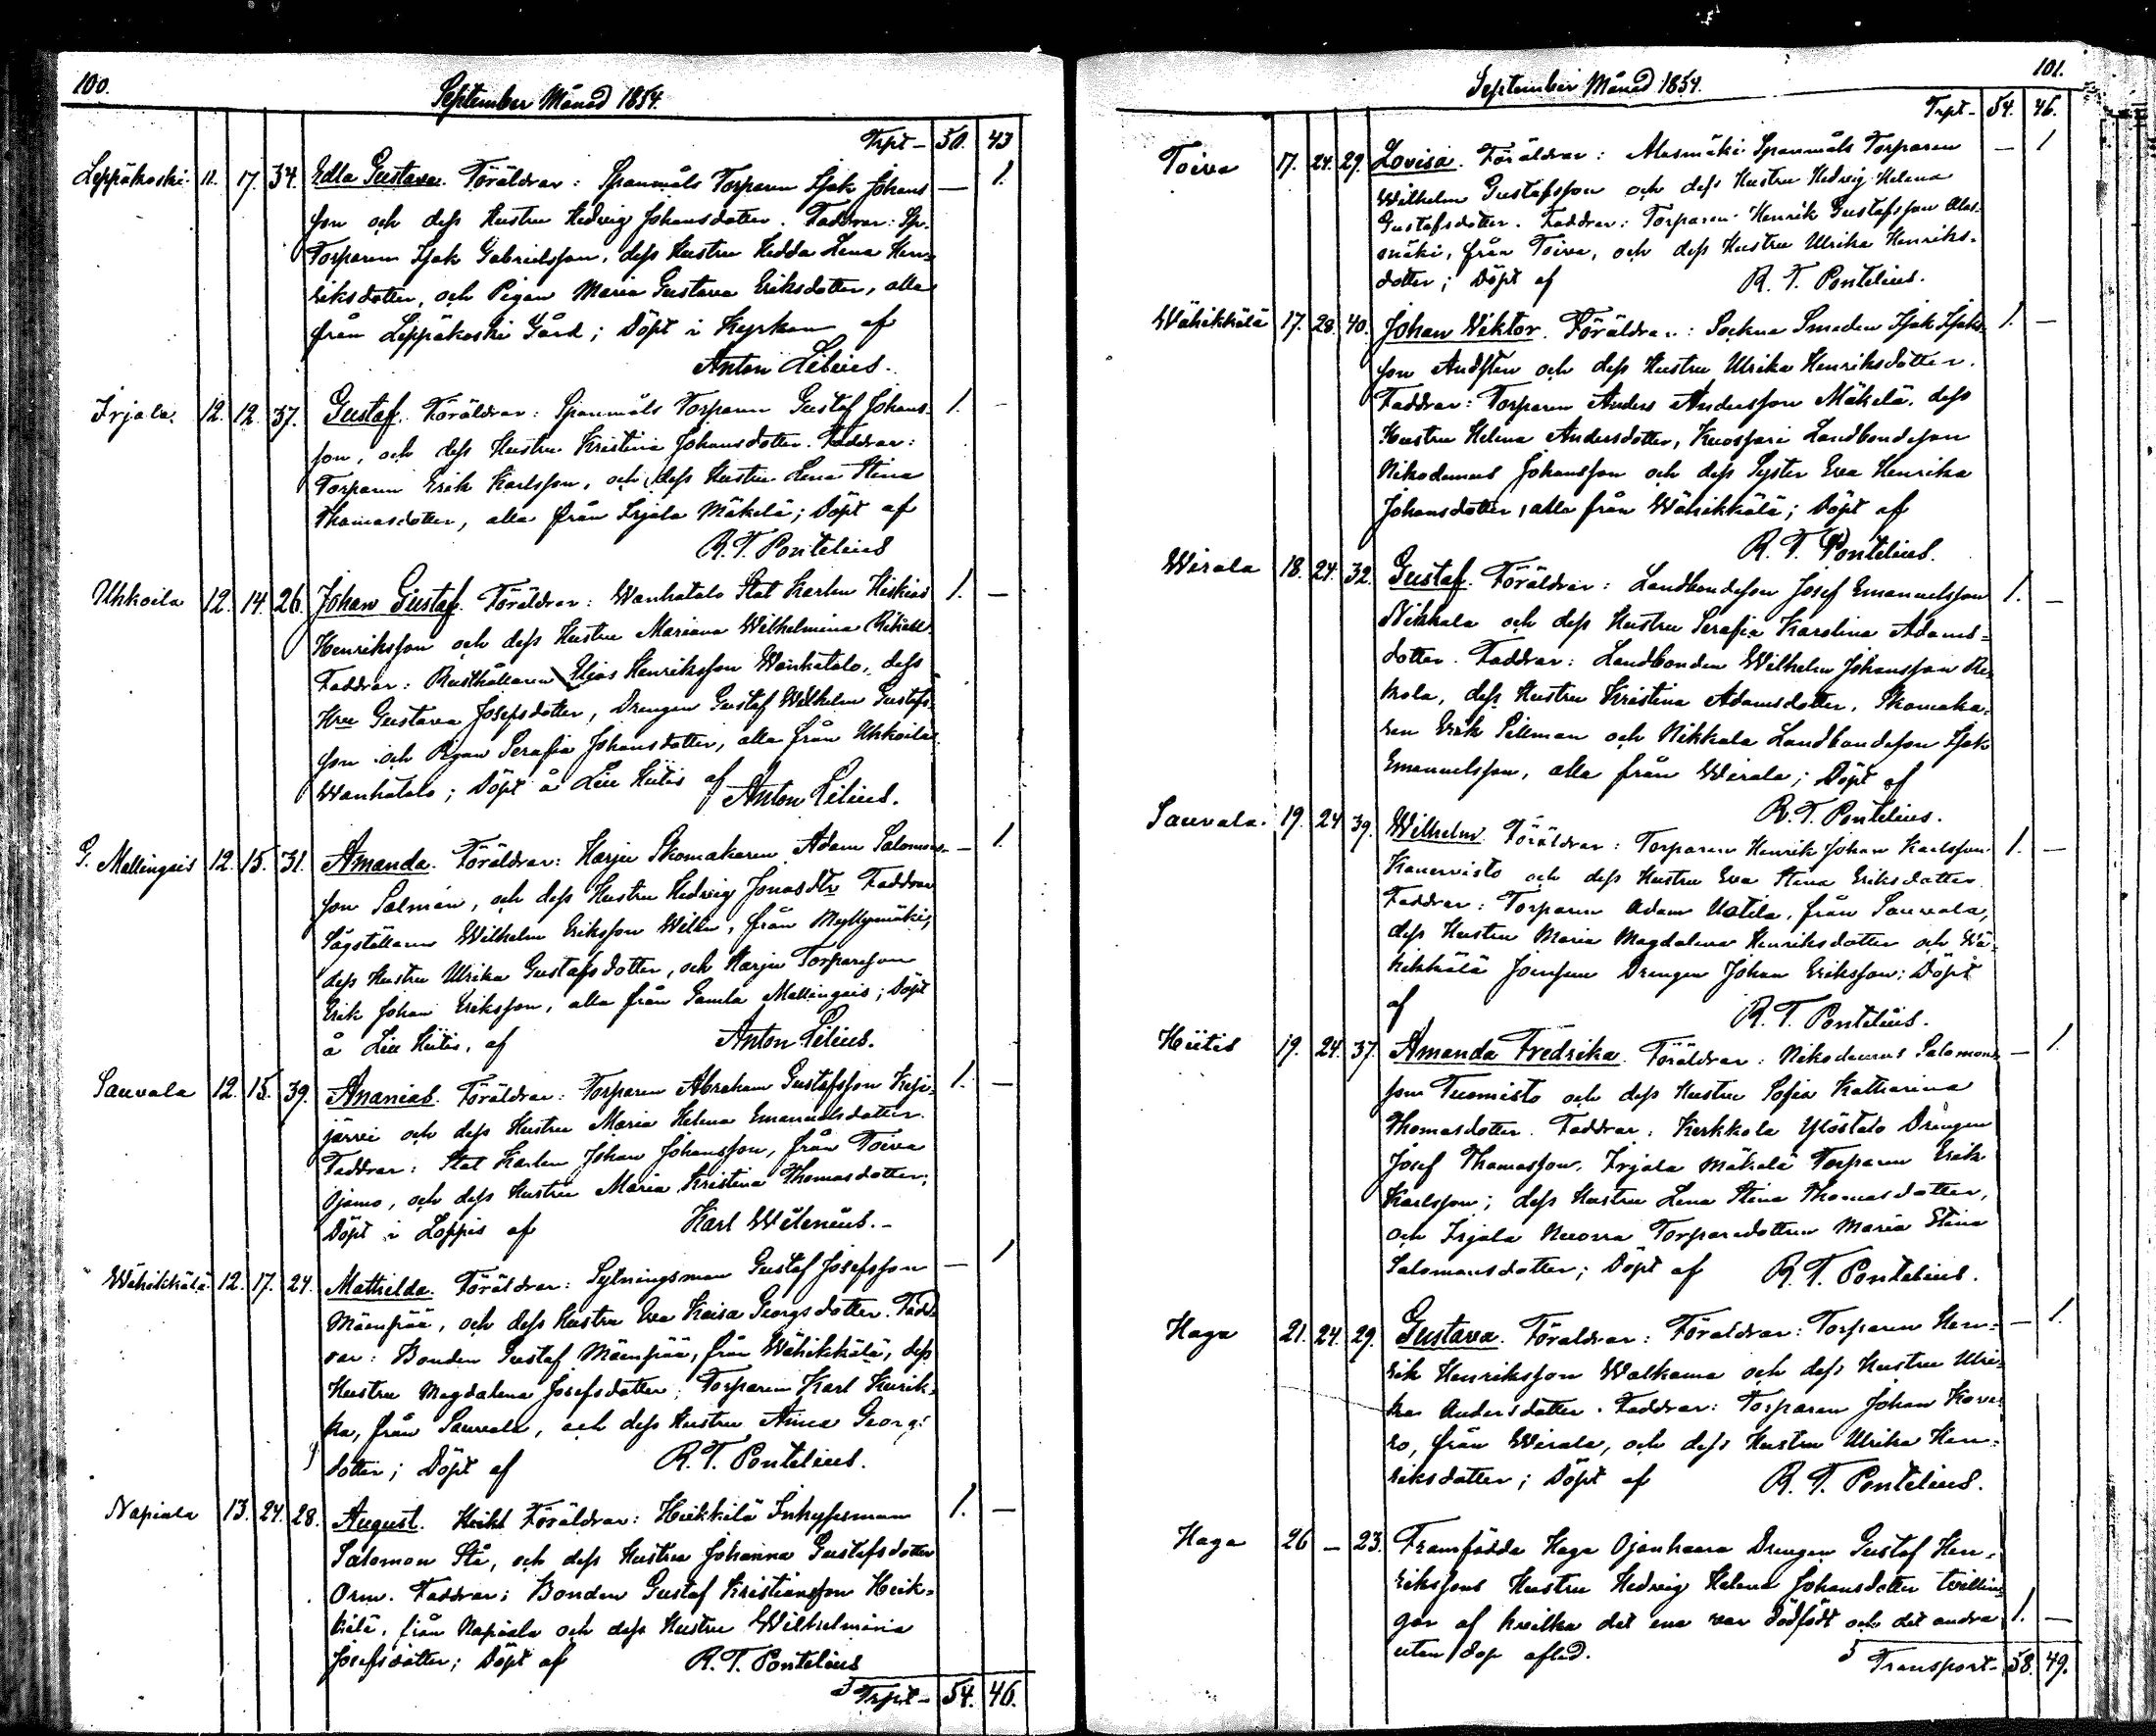 100.
September Månad 1854.
Trpt - 50. 43
Leppäkoski 11. 17. 34. Edla Gustava. Föräldrar: Spanmåls Torparen Isak Johans — 1.
son och dess Hustru Hedvig Johansdotter. Faddrar: Sp.
Torparen Isak Gabrielsson, dess Hustru Hedda Lena Hen-
riksdotter, och Pigan Maria Gustava Eriksdotter, alla
från Leppäkoski Gård; Döpt i Kyrkan af
Anton Lilius.
Irjala. 12. 12. 37. Gustaf. Föräldrar: Spanmåls Torparen Gustaf Johans- 1. -
son, och dess Hustru Kristina Johansdotter. Faddrar:
Torparen Erik Karlsson, och dess Hustru Lena Stina
Thomasdotter, alla från Irjala Mäkelä; Döpt af
R. T. Pontelius
Uhkoila 12. 14. 26. Johan Gustaf. Föräldrar: Wanhatalo Stat Karlen Hiskias 1. —
Henriksson och dess Hustru Mariana Wilhelmina
Faddrar: Rusthållaren Elias Henriksson Wanhatalo, dess
Hru Gustava Josefsdotter, Drengen Gustaf Wilhelm Gustafs-
son och Pigan Serafia Johansdotter, alla från Uhkoila
Wanhatalo; Döpt å Lill Hiitis af Anton Lilius.
G. Mallingais 12. 15. 31. Amanda. Föräldrar: Harju Skomakaren Adam Salomons- — 1.
son Salmén, och dess Hustru Hedvig Jonasdtr Faddrar
Wilhelm Eriksson Wilén, från Myllymäki,
dess Hustru Ulrika Gustafsdotter, och Harju Torpareson
Erik Johan Eriksson, alla från Gamla Mallingais; Döpt
å Lill Hiitis, af Anton Lilius.
Sauvala 12. 15. 39. Ananias. Föräldrar: Torparen Abraham Gustafsson Kesi- 1. —
järvi och dess Hustru Maria Helena Emanuelsdotter.
Faddrar: Stat Karlen Johan Johansson, från Toiva
Ojamo, och dess Hustru Maria Kristina Thomasdotter;
Döpt i Loppis af Karl Wilenius. -
Wähikkälä 12. 17. 24. Mathilda. Föräldrar: Sytningsman Gustaf Josefsson — 1
Mäenpää, och dess Hustru Eva Kaisa Georgsdotter. Fadd-
rar: Bonden Gustaf Mäenpää, från Wähikkälä, dess
Hustru Magdalena Josefsdotter, Torparen Karl Kurik-
ka, från Sauvala, och dess Hustru Anna Georgs
dotter; Döpt af R. T. Pontelius.
Napiala 13. 24. 28. August. Föräldrar: Heikkilä Inhysesman 1. —
Salomon Stå, och dess Hustru Johanna Gustafsdotter
Orm. Faddrar: Bonden Gustaf Kristiansson Heik-
kilä, från Napiala och dess Hustru Wilhelmina
Josefsdotter; Döpt af R. T. Pontelius
Trpt - 54. 46.
101.
September Månad 1854.
Trpt - 54. 46.
Toiva 17. 24. 29. Lovisa. Föräldrar: Alasmäki Spanmåls Torparen — 1
Wilhelm Gustafsson och dess Hustru Hedvig Helena
Gustafsdotter. Faddrar: Torparen Henrik Gustafsson Alas-
mäki, från Toiva, och dess Hustru Ulrika Henriks-
dotter; Döpt af R. T. Pontelius.
Wähikkälä 17. 28. 40. Johan Wiktor. Föräldrar: Sockne Smeden Isak Isaks- 1. —
son Andsten och dess Hustru Ulrika Henriksdotter.
Faddrar: Torparen Anders Andersson Mäkelä, dess
Hustru Helena Andersdotter, Kuospari Landbondeson
Nikodemus Johansson och dess Syster Eva Henrika
Johansdotter, alla från Wähikkälä; Döpt af
R. T. Pontelius.
Wirala 18. 24. 32. Gustaf. Föräldrar: Landbondeson Josef Emanuelsson 1. —
Nikkala och dess Hustru Serafia Karolina Adams-
dotter. Faddrar: Landbonden Wilhelm Johansson Re-
kola, dess Hustru Kristina Adamsdotter, Skomaka-
ren Erik Sillman och Nikkala Landbondeson Isak
Emanuelsson, alla från Wirala; Döpt af
R. T. Pontelius.
Sauvala. 19. 24 39. Wilhelm. Föräldrar: Torparen Henrik Johan Karlsson 1. —
Kanervisto och dess Hustru Eva Stina Eriksdotter.
Faddrar: Torparen Adam Uotila, från Sauvala,
dess Hustru Maria Magdalena Henriksdotter och Wä-
hikkälä Drengen Johan Eriksson; Döpt
af R. T. Pontelius.
Hiitis 19. 24. 37. Amanda Fredrika. Föräldrar: Nikodemus Salomons- — 1.
son Tuomisto och dess Hustru Sofia Katharina
Thomasdotter. Faddrar: Kerkkola Ylöstalo Drengen
Josef Thomasson, Irjala Mäkelä Torparen Erik
Karlsson; dess Hustru Lena Stina Thomasdotter,
och Irjala Nuorra Torparedottren Maria Stina
Salomonsdotter; Döpt af R. T. Pontelius.
Haga 21. 24. 29. Gustava. Föräldrar: Föräldrar: Torparen Hen- — 1.
rik Henriksson Walkama och dess Hustru Ulri-
ka Andersdotter. Faddrar: Torparen Johan Kove-
ro, från Wirala, och dess Hustru Ulrika Hen-
riksdotter; Döpt af R. T. Pontelius.
Haga 26 — 23. Framfödda Haga Ojanhaara Drengen Gustaf Hen-
rikssons Hustru Hedvig Helena Johansdotter tvillin-
gar af hvilka det ena var dödfödt och det andra 1. —
utan dop afled. Transport - 58. 49.